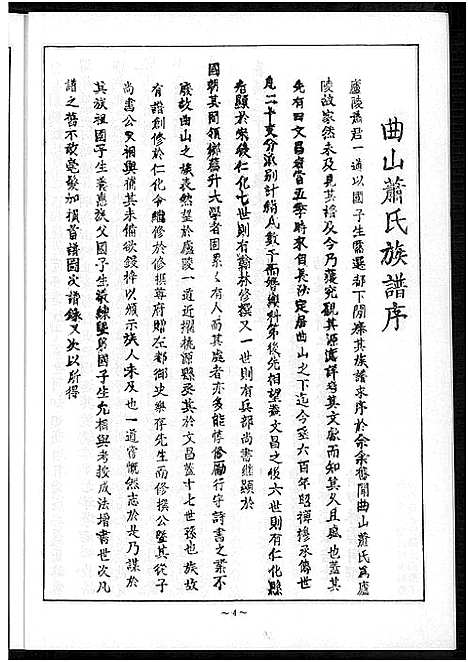 曲山蕭氏族譜序
廬陵蕭君一道以國子生需選都下間持其族譜來序於余余舊聞曲山蕭氏為廬
陵故家然未及見其譜及今乃獲究觀其源流詳考其文獻而知其久且盛也蓋其
先有四文昌者當五季時來自長沙定居曲山之下迄今垂六百年昭穆承傳世
凡二十支分派別計緡民數千而簪纓科第後先相望蓋文昌之後六世則有仁化縣
令顯於宋後仁化七世則有翰林修撰又一世則有兵部尚書繼顯於
國朝其間領鄉薦升大學者固累之有人而其處者亦多能惇倫勵行守詩書之業不
廢故曲山之族表然望於廬陵一道近擢桃源縣丞其於文昌蓋十七世孫也族故
有譜創修於仁化令繼修於修撰尊府贈左都御史樂存先生而修撰公暨其從子
尚書公又相與補其未備欲鋟梓以頒示族人未及也一道嘗慨然志於是乃謀於
其族祖國子生養惠族父國子生 暨弟國子生允相與考按成法增書世次凡
譜之舊不敢毫髮加損首譜圖次譜錄又次以所得
~4~